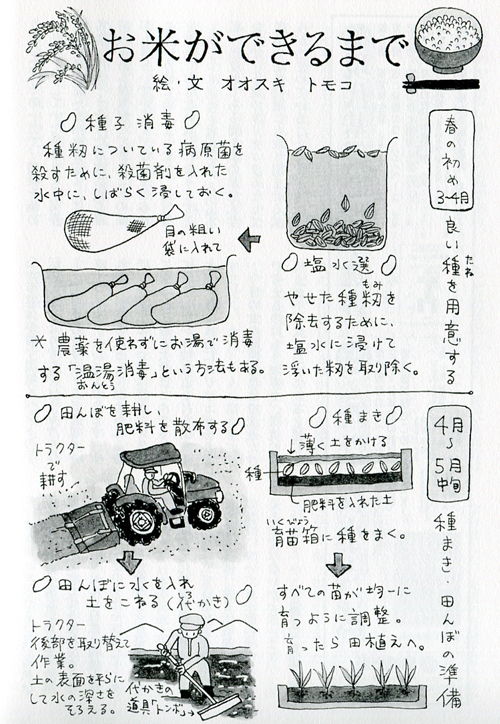 お米ができるまで
絵・文 オオスキ トモコ
春の初め
3~4月
良い種を用意する
たね
塩水選
やせた種籾を
もみ
除去するために、
塩水に浸けて
浮いた籾を取り除く。
種子消毒
種籾についている病原菌を
殺すために、殺菌剤を入れた
水中に、しばらく浸しておく。
目の粗い
袋に入れて
* 農薬を使わずにお湯で消毒
する「温湯消毒」という方法もある。
おんとう
4月
~
5月
中旬
種まき・田んぼの準備
種まき
薄く土をかける
種
肥料を入れた土
いくびょう
育苗箱に種をまく。
すべての苗が均一に
育つように調整。
育ったら田植えへ。
田んぼを耕し、
肥料を散布する
トラクター
で
耕す!
田んぼに水を入れ
土をこねる(代かき)
しろ
トラクター
後部を取り替えて
作業。
土の表面を平らに
して水の深さを
そろえる。
代かきの
道具「トンボ」